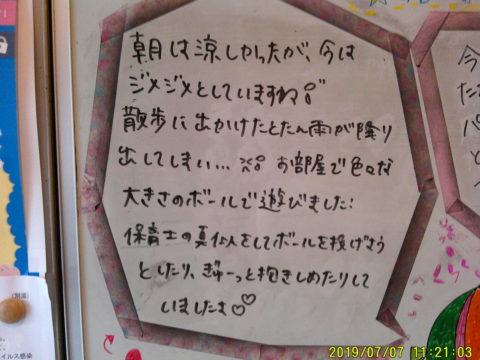 朝は涼しかったが、今は
ジメジメとしていますね。
散歩に出かけたとたん雨が降り
出してしまい… お部屋で色々な
大きさのボールで遊びました!
保育士の真似をしてボールを投げよう
としたり、ぎゅーっと抱きしめたりして
いました♡♡
今
たて
パ
と
(別添)
イルス感染
2019/07/07 11:21:03